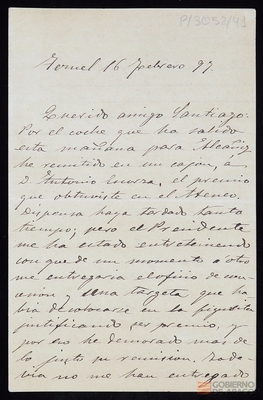 P/3052/49
Teruel 16 Febrero 97.
Querido amigo Santiago:
Por el coche que ha salido
esta mañana para Alcañiz
he remitido en un cajon, á
D. Antonio el premio
que obtuviste en el Ateneo.
Dispensa haya tardado tanto
tiempo; pero el Presidente
me ha estado entreteniendo
con que de un momento á otro
me entregaria el oficio de
y una targeta que ha
bia de colocarse en la figurita
justificando ser premio, y
por eso he demorado mas de
lo justo su remision. Toda
via no me han entregado
GOBIERNO
DE ARAGON